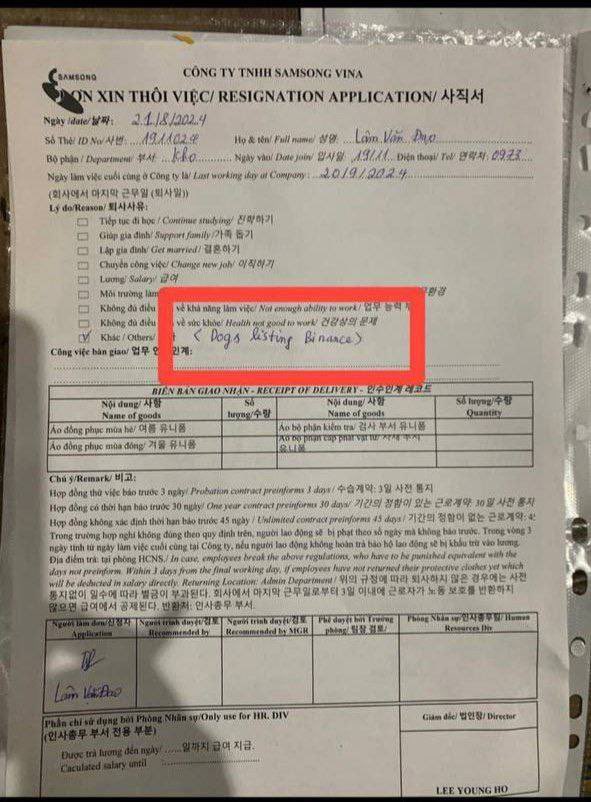 SAMSONG
CÔNG TY TNHH SAMSONG VINA
ĐƠN XIN THÔI VIỆC/ RESIGNATION APPLICATION/ 사직서
Ngày /date/날짜: 21/8/2024
Số Thẻ/ ID No/사번: 1911024 Họ & tên/ Full name/ 성명: Lâm Văn Đạo
Bộ phận / Department/ 부서: Kho Ngày vào/ Date join/ 입사일: 19/11 Điện thoại/ Tel/ 연락처: 0973
Ngày làm việc cuối cùng ở Công ty là/ Last working day at Company : 20/9/2024
(회사에서 마지막 근무일 (퇴사일))
Lý do/Reason/ 퇴사사유:
Tiếp tục đi học / Continue studying/ 진학하기
Giúp gia đình/ Support family/가족 돕기
Lập gia đình/ Get married/ 결혼하기
Chuyển công việc/ Change new job/ 이직하기
Lương/ Salary/ 급여
Môi trường làm
Không đủ điều về khả năng làm việc/ Not enough ability to work/ 업무 능력
Không đủ điều về sức khỏe/ Health not good to work/ 건강상의 문제
Khác / Others/ (Dogs listing Binance)
Công việc bàn giao/ 업무 인계:
BIÊN BẢN GIAO NHẬN - RECEIPT OF DELIVERY - 인수인계 레코드
Nội dung/ 사항 Số Nội dung/ 사항 Số lượng/수량
Name of goods lượng/수량 Name of goods Quantity
Áo đồng phục mùa hè/ 여름 유니폼 Áo bộ phận kiểm tra/ 검사 부서 유니폼
Áo đồng phục mùa đông/ 겨울 유니폼 Áo bộ phận cấp phát vật tư/ 자재 부서
유니폼
Chú ý/Remark/ 비고:
Hợp đồng thử việc báo trước 3 ngày/ Probation contract preinforms 3 days / 수습계약: 3일 사전 통지
Hợp đồng có thời hạn báo trước 30 ngày/ One year contract preinforms 30 days/ 기간의 정함이 있는 근로계약: 30일 사전 통지
Hợp đồng không xác định thời hạn báo trước 45 ngày / Unlimited contract preinforms 45 days / 기간의 정함이 없는 근로계약:
Trong trường hợp nghỉ không đúng theo quy định trên, người lao động sẽ bị phạt theo số ngày mà không báo trước. Trong vòng 3
ngày tính từ ngày làm việc cuối cùng tại Công ty, nếu người lao động không hoàn trả bảo hộ lao động sẽ bị khấu trừ vào lương.
Địa điểm trả: tại phòng HCNS./ In case, employees break the above regulations, who have to be punished equivalent with the
days not preinform. Within 3 days from the final working day, if employees have not returned their protective clothes yet which
will be deducted in salary directly. Returning Location: Admin Department / 위의 규정에 따라 퇴사하지 않은 경우에는 사전
통지없이 일수에 따라 벌금이 부과된다. 회사에서 마지막 근무일로부터 3일 이내에 근로자가 노동 보호를 반환하지
않으면 급여에서 공제된다. 반환처: 인사총무 부서.
Người làm đơn/신청자 Người trình duyệt/검토 Người trình duyệt/검토 Phê duyệt bởi Trưởng Phòng Nhân sự/인사총무팀/ Human
Application Recommended by Recommended by MGR phòng/ 팀장 검토/ Resources Div
Lâm Văn Đạo
Phần chỉ sử dụng bởi Phòng Nhân sự/Only use for HR. DIV Giám đốc/ 법인장/ Director
(인사총무 부서 전용 부분)
Được trả lương đến ngày/ ......일까지 급여 지급.
Caculated salary until :
LEE YOUNG HO